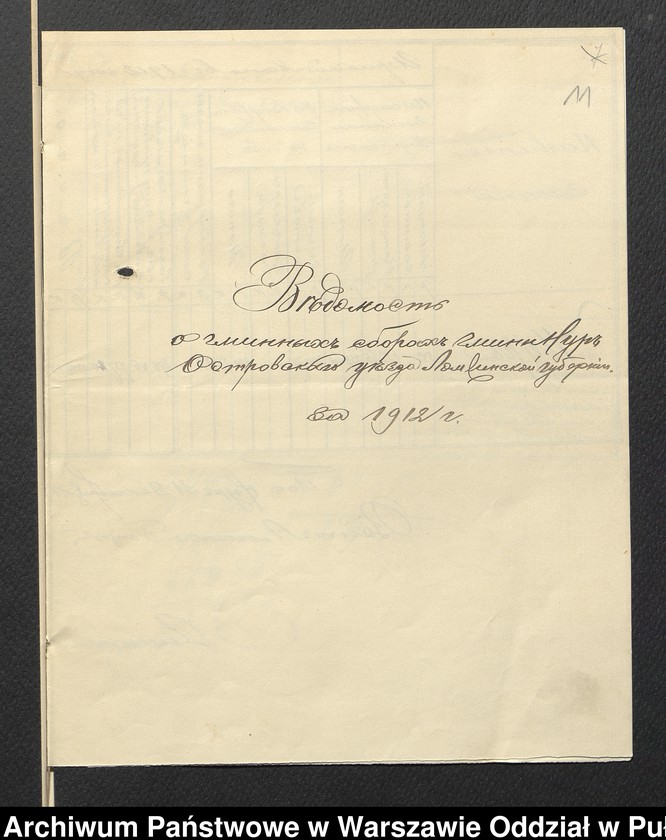 11
Вѣдомость
о гминныхъ сборахъ гмины Нуръ
Островскаго уѣзда Ломжинской губерніи.
за 1912 г.
Archiwum Państwowe w Warszawie Oddział w Pu